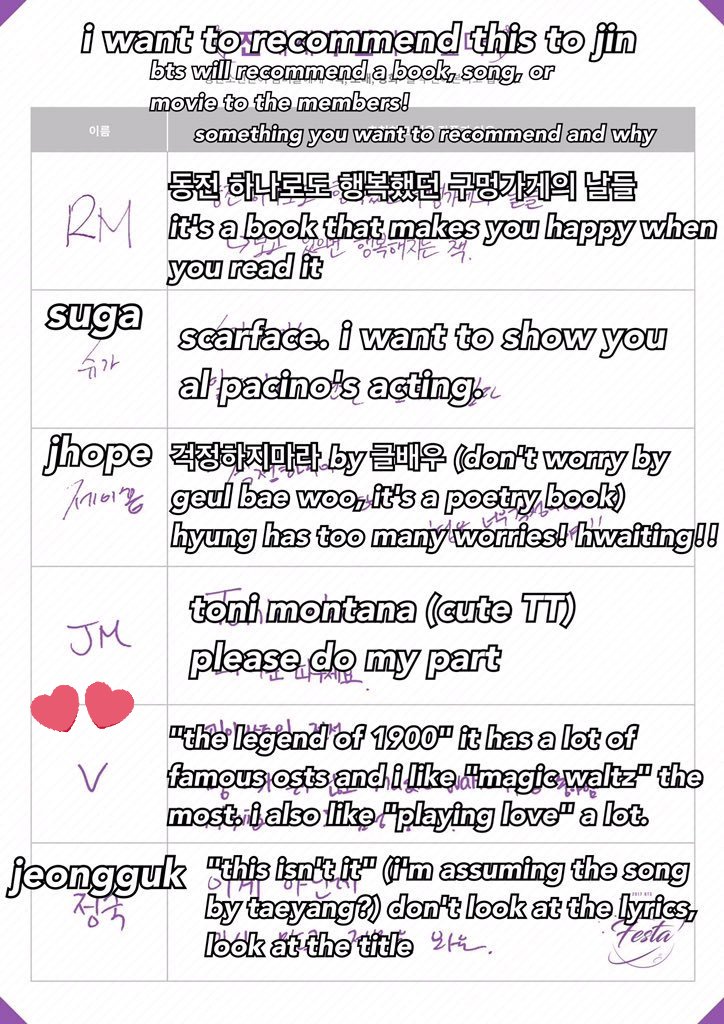 i want to recommend this to jin
bts will recommend a book, song, or
movie to the members!
이름
something you want to recommend and why
RM
동전 하나로도 행복했던 구멍가게의 날들
it's a book that makes you happy when
you read it
행복해지는 책.
suga
슈가
scarface. i want to show you
al pacino's acting.
jhope
제이홉
걱정하지마라 by 글배우 (don't worry by
geul bae woo, it's a poetry book)
hyung has too many worries! hwaiting!!
JM
toni montana (cute TT)
please do my part
V
"the legend of 1900" it has a lot of
famous osts and i like "magic waltz" the
most. i also like "playing love" a lot.
jeongguk
정국
"this isn't it" (i'm assuming the song
by taeyang?) don't look at the lyrics,
look at the title
이게 아닌데
봐요.
2017 BTS
Festa